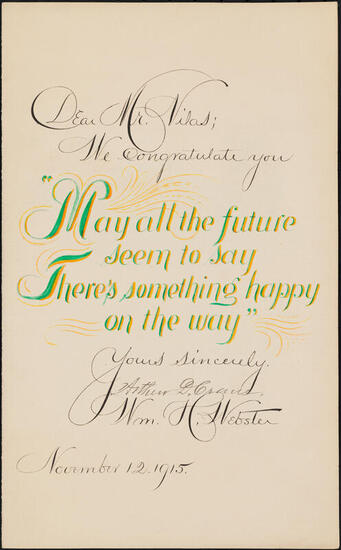 Dear Mr. Vilas;
We Congratulate you
"May all the future
seem to say
There's something happy
on the way"
Yours sincerely.
Arthur D.
Wm. H. Webster
November 12. 1915.